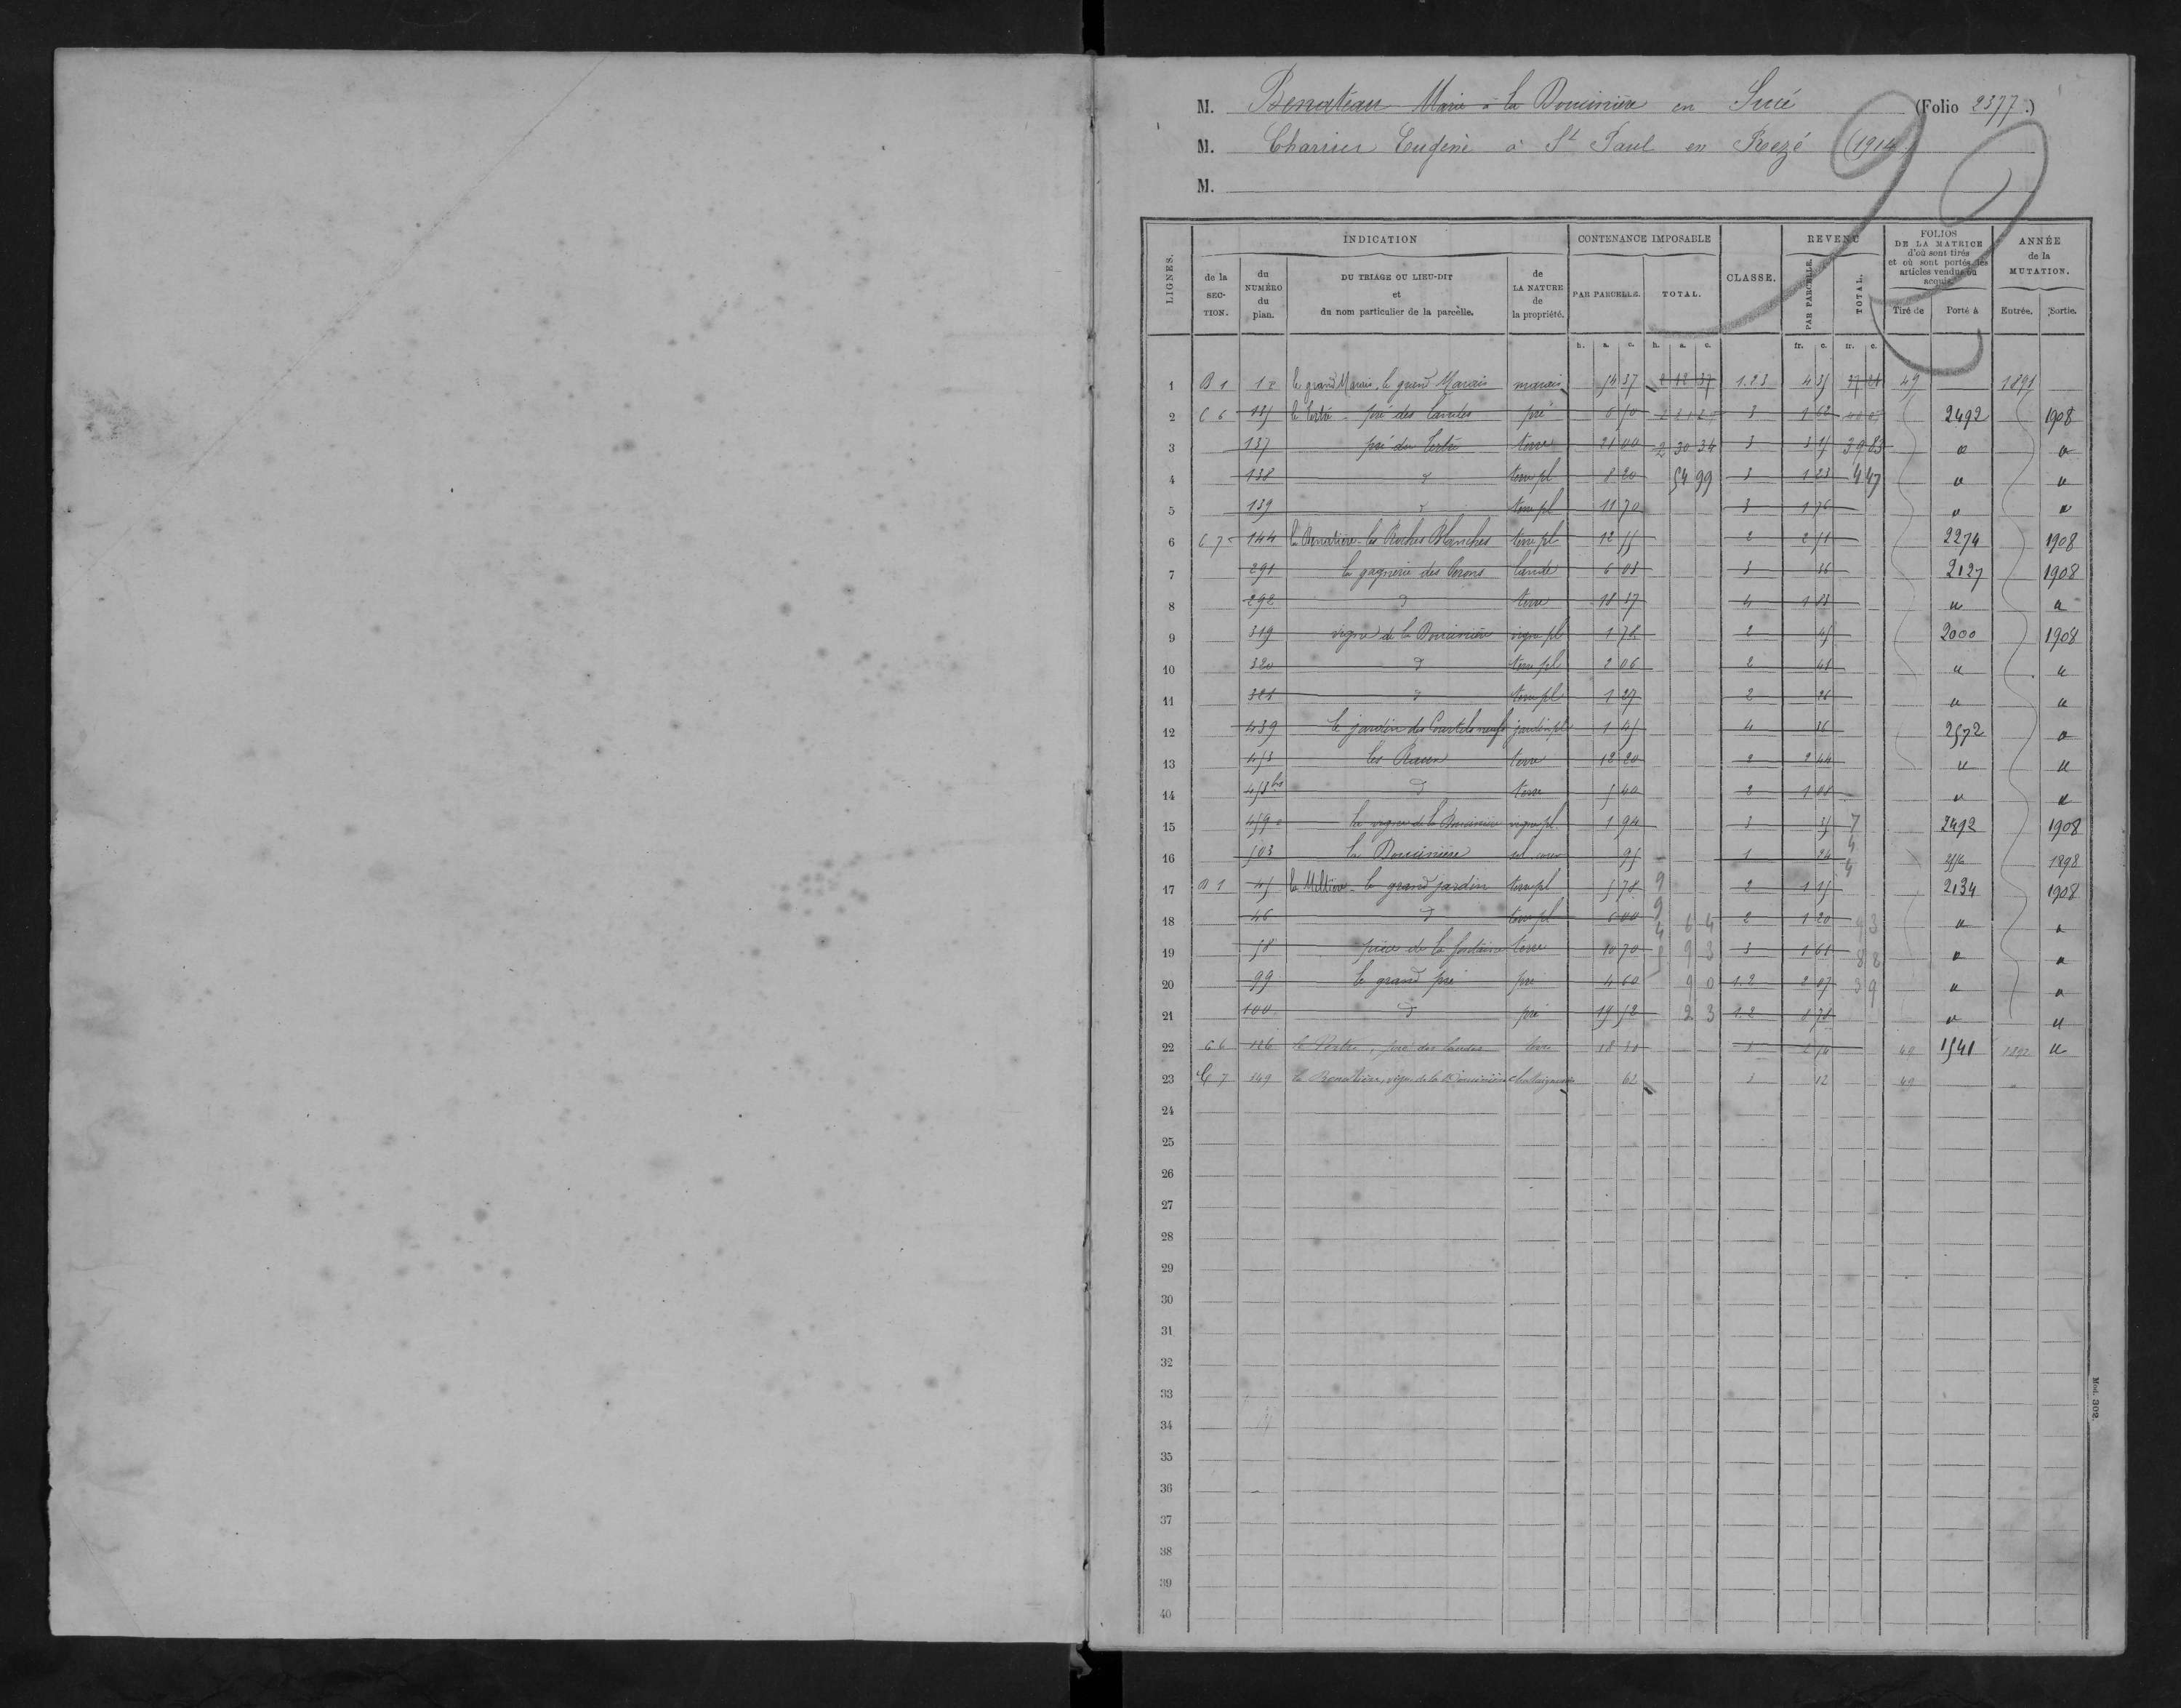 M. Benateau Marie à la Doucinière en Sucé (Folio 2377.)
M. Charrier Eugène à St Paul en Rezé (1914)
M.
LIGNES. INDICATION CONTENANCE IMPOSABLE CLASSE. REVENU FOLIOS DE LA MATRICE d'où sont tirés et où sont portés les articles vendus ou acquis. ANNÉE de la MUTATION.
de la SECTION. du NUMÉRO du plan. DU TRIAGE OU LIEU-DIT et du nom particulier de la parcelle. de LA NATURE de la propriété. PAR PARCELLE. TOTAL. PAR PARCELLE. TOTAL. Tiré de Porté à Entrée. Sortie.
h. a. c. h. a. c. fr. c. fr. c.
1 B 1 le grand Marais, le grand Marais marais 54 37 2 12 37 1.2.3 4 35 37 21 49 1891
2 C 6 135 le Tertre pré des Landes pré 3 1 62 2492 1908
3 137 pré du Tertre terre 21 00 2 30 34 3 3 15 39 83 "
4 138 d terre pl 8 20 54 99 3 1 23 4 47 " "
5 139 d terre pl 11 70 3 1 76 " "
6 C 7 144 les Roches Blanches terre pl 12 55 2 2 51 2274 1908
7 291 la gagnerie des lande 6 03 3 2127 1908
8 292 d terre 18 37 4 1 83 " "
9 319 vigne de la Doucinière vigne pl 2 2000 1908
10 320 d terre pl 2 06 2 41 " "
11 321 d terre pl 1 27 2 " "
12 439 le jardin des Courtils neufs jardin pl 1 45 4 36 2572 "
13 453 les terre 12 20 2 2 44 " "
14 453 bis d terre 5 40 2 1 08 " "
15 459 la vigne de la Doucinière vigne pl. 1 94 3 2492 1908
16 503 la Doucinière sol cour 95 1 24 1898
17 B 1 45 le grand jardin terre pl 5 78 2 1 15 2134 1908
18 46 d terre pl 6 00 2 1 20 " "
19 58 pièce de la fontaine terre 10 70 3 1 61 " "
20 99 le grand pré pré 4 60 1.2 2 07 " "
21 100 d pré 19 52 1.2 8 78 " "
22 C 6 126 le Tertre, pré des Landes 3 49 1541 1892 "
23 C 7 349 vigne de la Doucinière 62 3 12 49
24
25
26
27
28
29
30
31
32
33
34
35
36
37
38
39
40
Mod. 302.